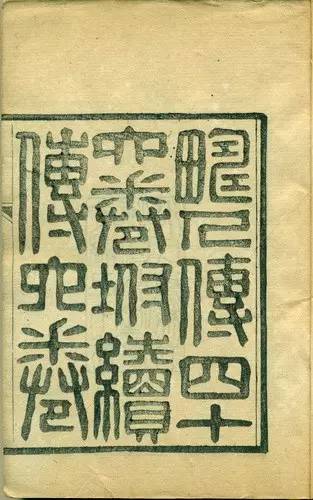 疇人傳四十
六卷坿續
傳六卷